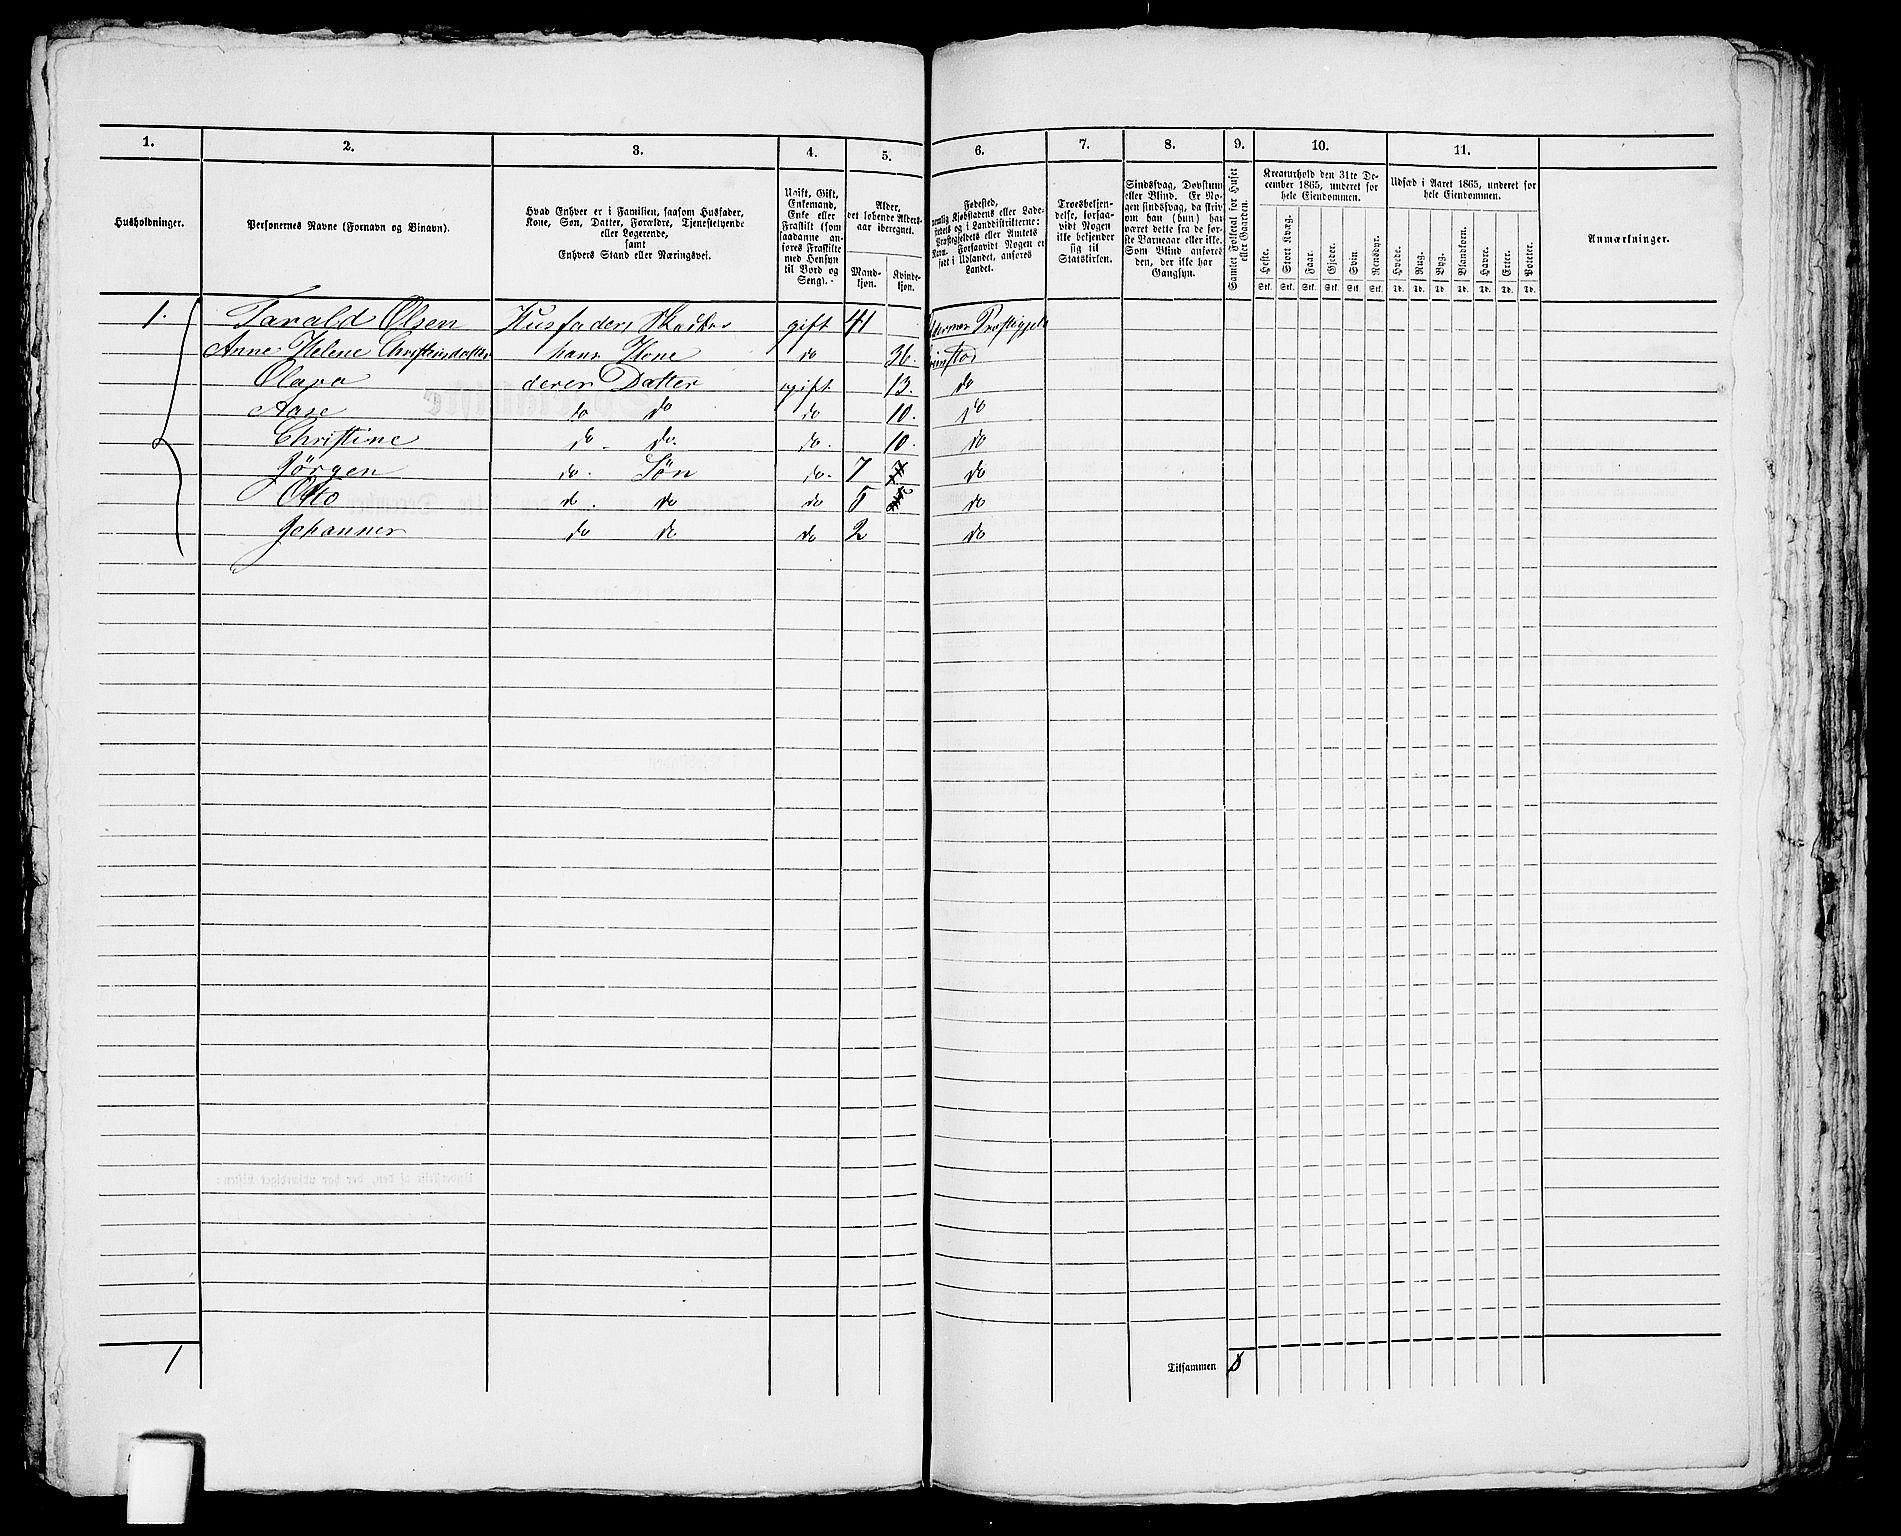 1. 2. 3. 4. 5. 6. 7. 8. 9. 10. 11.
Husholdninger.
Personernes Navne (Fornavn og Binavn).
Hvad Enhver er i Familien, saasom Husfader,
Kone, Søn, Datter, Forældre, Tjenestetyende
eller Logerende,
samt
Enhvers Stand eller Næringsvei.
Ugift, Gift,
Enkemand,
Enke eller
Fraskilt (som
saadanne an-
føres Fraskilte
med Hensyn
til Bord og
Seng).
Alder,
det løbende Alders-
aar iberegnet.
Mand-
kjøn.
Kvinde-
kjøn.
Fødested,
nemlig Kjøbstadens eller Lade-
stedets og i Landdistrikterne:
Præstegjeldets eller Amtets
Navn. Forsaavidt Nogen er
født i Udlandet, anføres
Landet.
Troesbekjen-
delse, forsaa-
vidt Nogen
ikke bekjender
sig til
Statskirken.
Sindssvag, Døvstum
eller Blind. Er No-
gen sindssvag, da skriv
om han (hun) har
været dette fra de før-
ste Barneaar eller ikke.
Som Blind anføres
den, der ikke har
Gangsyn.
Samlet Folketal for Huset
eller Gaarden.
Kreaturhold den 31te De-
cember 1865, underet for
hele Eiendommen.
Heste. Stort Kvæg. Faar. Gjeder. Svin. Rensdyr.
Stk. Stk. Stk. Stk. Stk. Stk.
Udsæd i Aaret 1865, underet for
hele Eiendommen.
Hvede. Rug. Byg. Blandkorn. Havre. Erter. Poteter.
Td. Td. Td. Td. Td. Td. Td.
Anmærkninger.
1. Tarald Olsen Husfader gift 41 Præstegjeld
Anne Helene Christensdatter hans Kone do 36.
Olava deres Datter ugift 13. do
Aase do do do 10. do
Christine do. do. do. 10. do
Jörgen do. Søn do. 7 7 do
Otto do. do do 5 do
Johannes do do do 2 do
1 Tilsammen 8